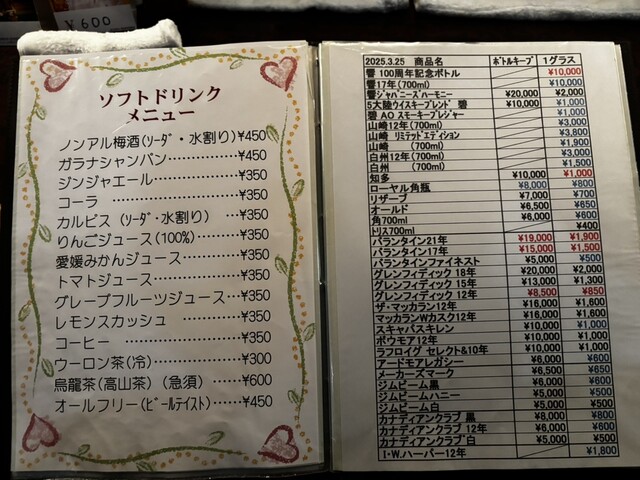 ¥600
ソフトドリンク
メニュー
ノンアル梅酒(ソーダ・水割り)¥450
ガラナシャンパン……………¥450
ジンジャエール………………¥350
コーラ ………………………¥350
カルピス (ソーダ・水割り) …¥350
りんごジュース(100%)………¥350
愛媛みかんジュース…………¥350
トマトジュース………………¥350
グレープフルーツジュース…¥350
レモンスカッシュ ……………¥350
コーヒー ……………………¥350
ウーロン茶(冷)………………¥300
烏龍茶(高山茶) (急須) ……¥600
オールフリー(ビールテイスト)……¥450
2025.3.25 商品名 ボトルキープ 1グラス
響 100周年記念ボトル ¥10,000
響17年(700ml) ¥10,000
響ジャパニーズハーモニー ¥20,000 ¥2,000
5大陸ウイスキーブレンド 碧 ¥10,000 ¥1,000
碧 AO スモーキープレジャー ¥1,000
山崎12年(700ml) ¥3,000
山崎 リミテッドエディション ¥3,800
山崎 (700ml) ¥1,000
白州12年(700ml) ¥3,000
白州 (700ml) ¥1,500
知多 ¥10,000 ¥1,000
ローヤル角瓶 ¥8,000 ¥800
リザーブ ¥7,000 ¥700
オールド ¥6,500 ¥650
角700ml ¥6,000 ¥600
トリス700ml ¥400
バランタイン21年 ¥19,000 ¥1,900
バランタイン17年 ¥15,000 ¥1,500
バランタインファイネスト ¥5,000 ¥500
グレンフィディック 18年 ¥20,000 ¥2,000
グレンフィディック 15年 ¥13,000 ¥1,300
グレンフィディック 12年 ¥8,500 ¥850
ザ・マッカラン12年 ¥16,000 ¥1,600
マッカランWカスク12年 ¥16,000 ¥1,600
スキャパスキレン ¥10,000 ¥1,000
ボウモア12年 ¥10,000 ¥1,000
ラフロイグ セレクト&10年 ¥10,000 ¥1,000
アードモアレガシー ¥6,000 ¥600
メーカーズマーク ¥6,500 ¥650
ジムビーム黒 ¥6,000 ¥600
ジムビームハニー ¥5,000 ¥500
ジムビーム白 ¥5,000 ¥500
カナディアンクラブ 黒 ¥8,000 ¥800
カナディアンクラブ 12年 ¥6,000 ¥600
カナディアンクラブ白 ¥5,000 ¥500
I.W.ハーパー12年 ¥1,800